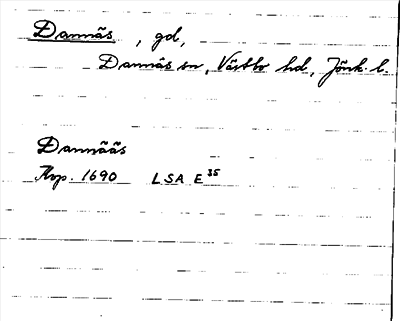 Dannäs, gd,
Dannäs sn, Västbo hd, Jönk. l.
Dannääs
Avp. 1690 LSA E 35